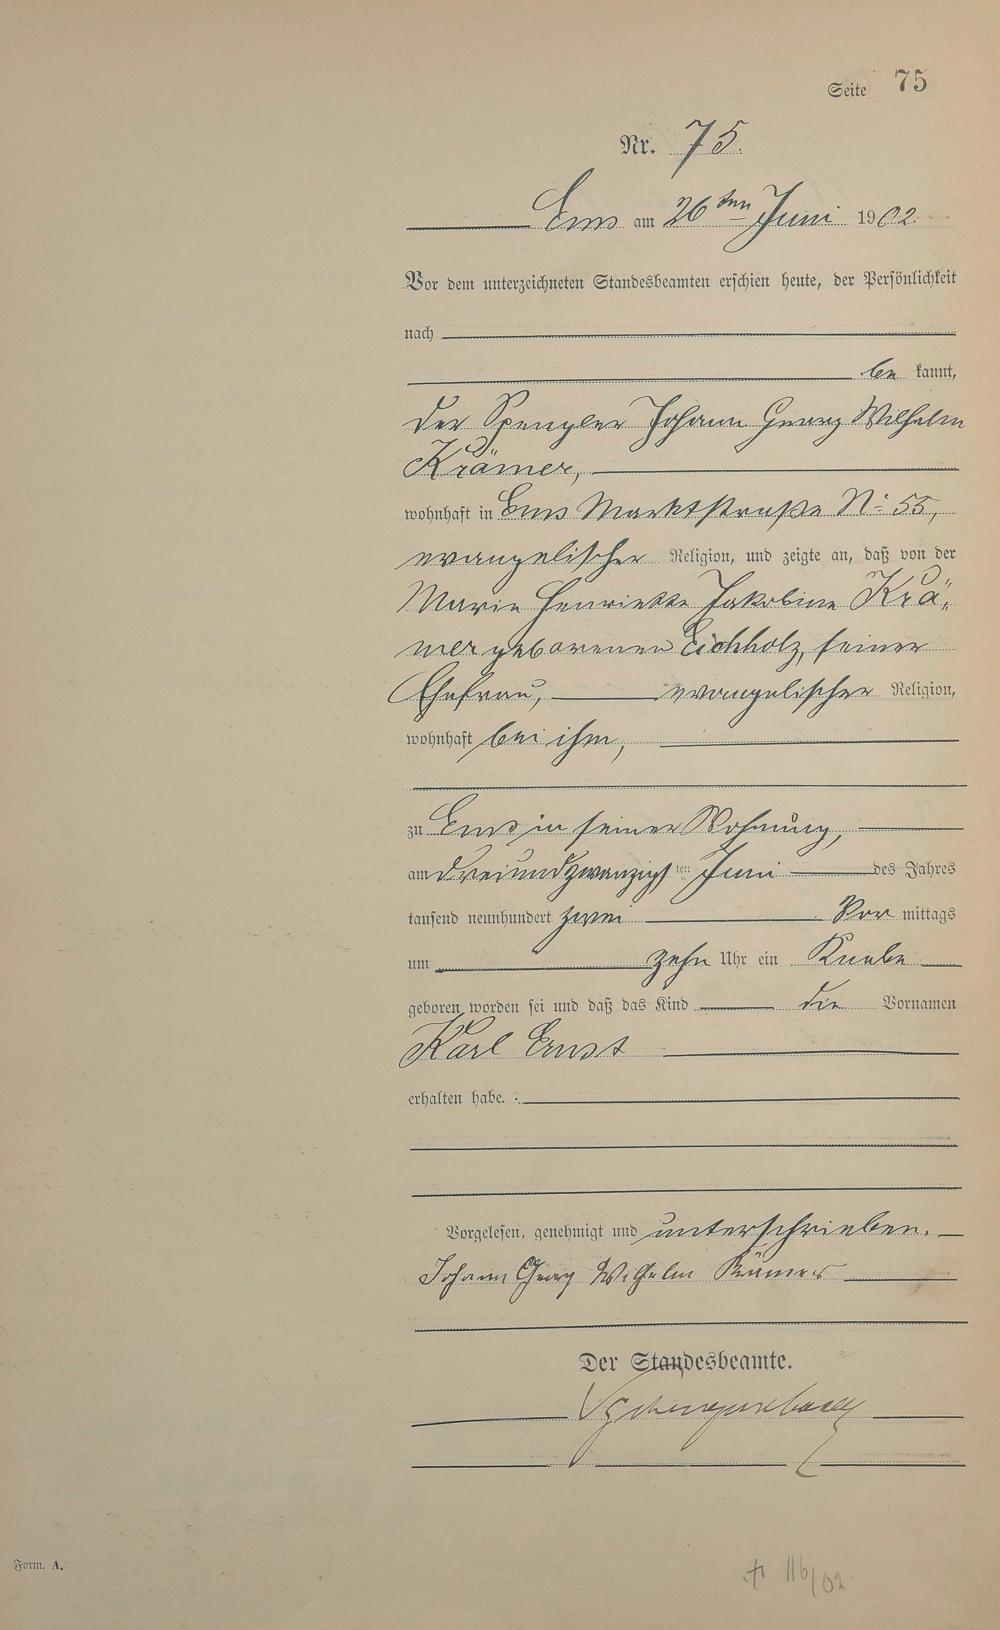 Seite 75
Nr. 75.
Ems am 26ten Juni 1902.
Vor dem unterzeichneten Standesbeamten erschien heute, der Persönlichkeit
nach
be kannt,
der Spengler Johann Georg Wilhelm
Krämer,
wohnhaft in Ems Marktstraße No 55,
evangelischer Religion, und zeigte an, daß von der
Marie Henriette Jakobine Krä„
mer geborenen Eichholz, seiner
Ehefrau, evangelischer Religion,
wohnhaft bei ihm,
zu Ems in seiner Wohnung,
am dreiundzwanzigsten Juni des Jahres
tausend neunhundert zwei Vor mittags
um zehn Uhr ein Knabe
geboren worden sei und daß das Kind die Vornamen
Karl Ernst
erhalten habe.
Vorgelesen, genehmigt und unterschrieben.
Johann Georg Wilhelm Krämer
Der Standesbeamte.
Form. A.
† 116/02